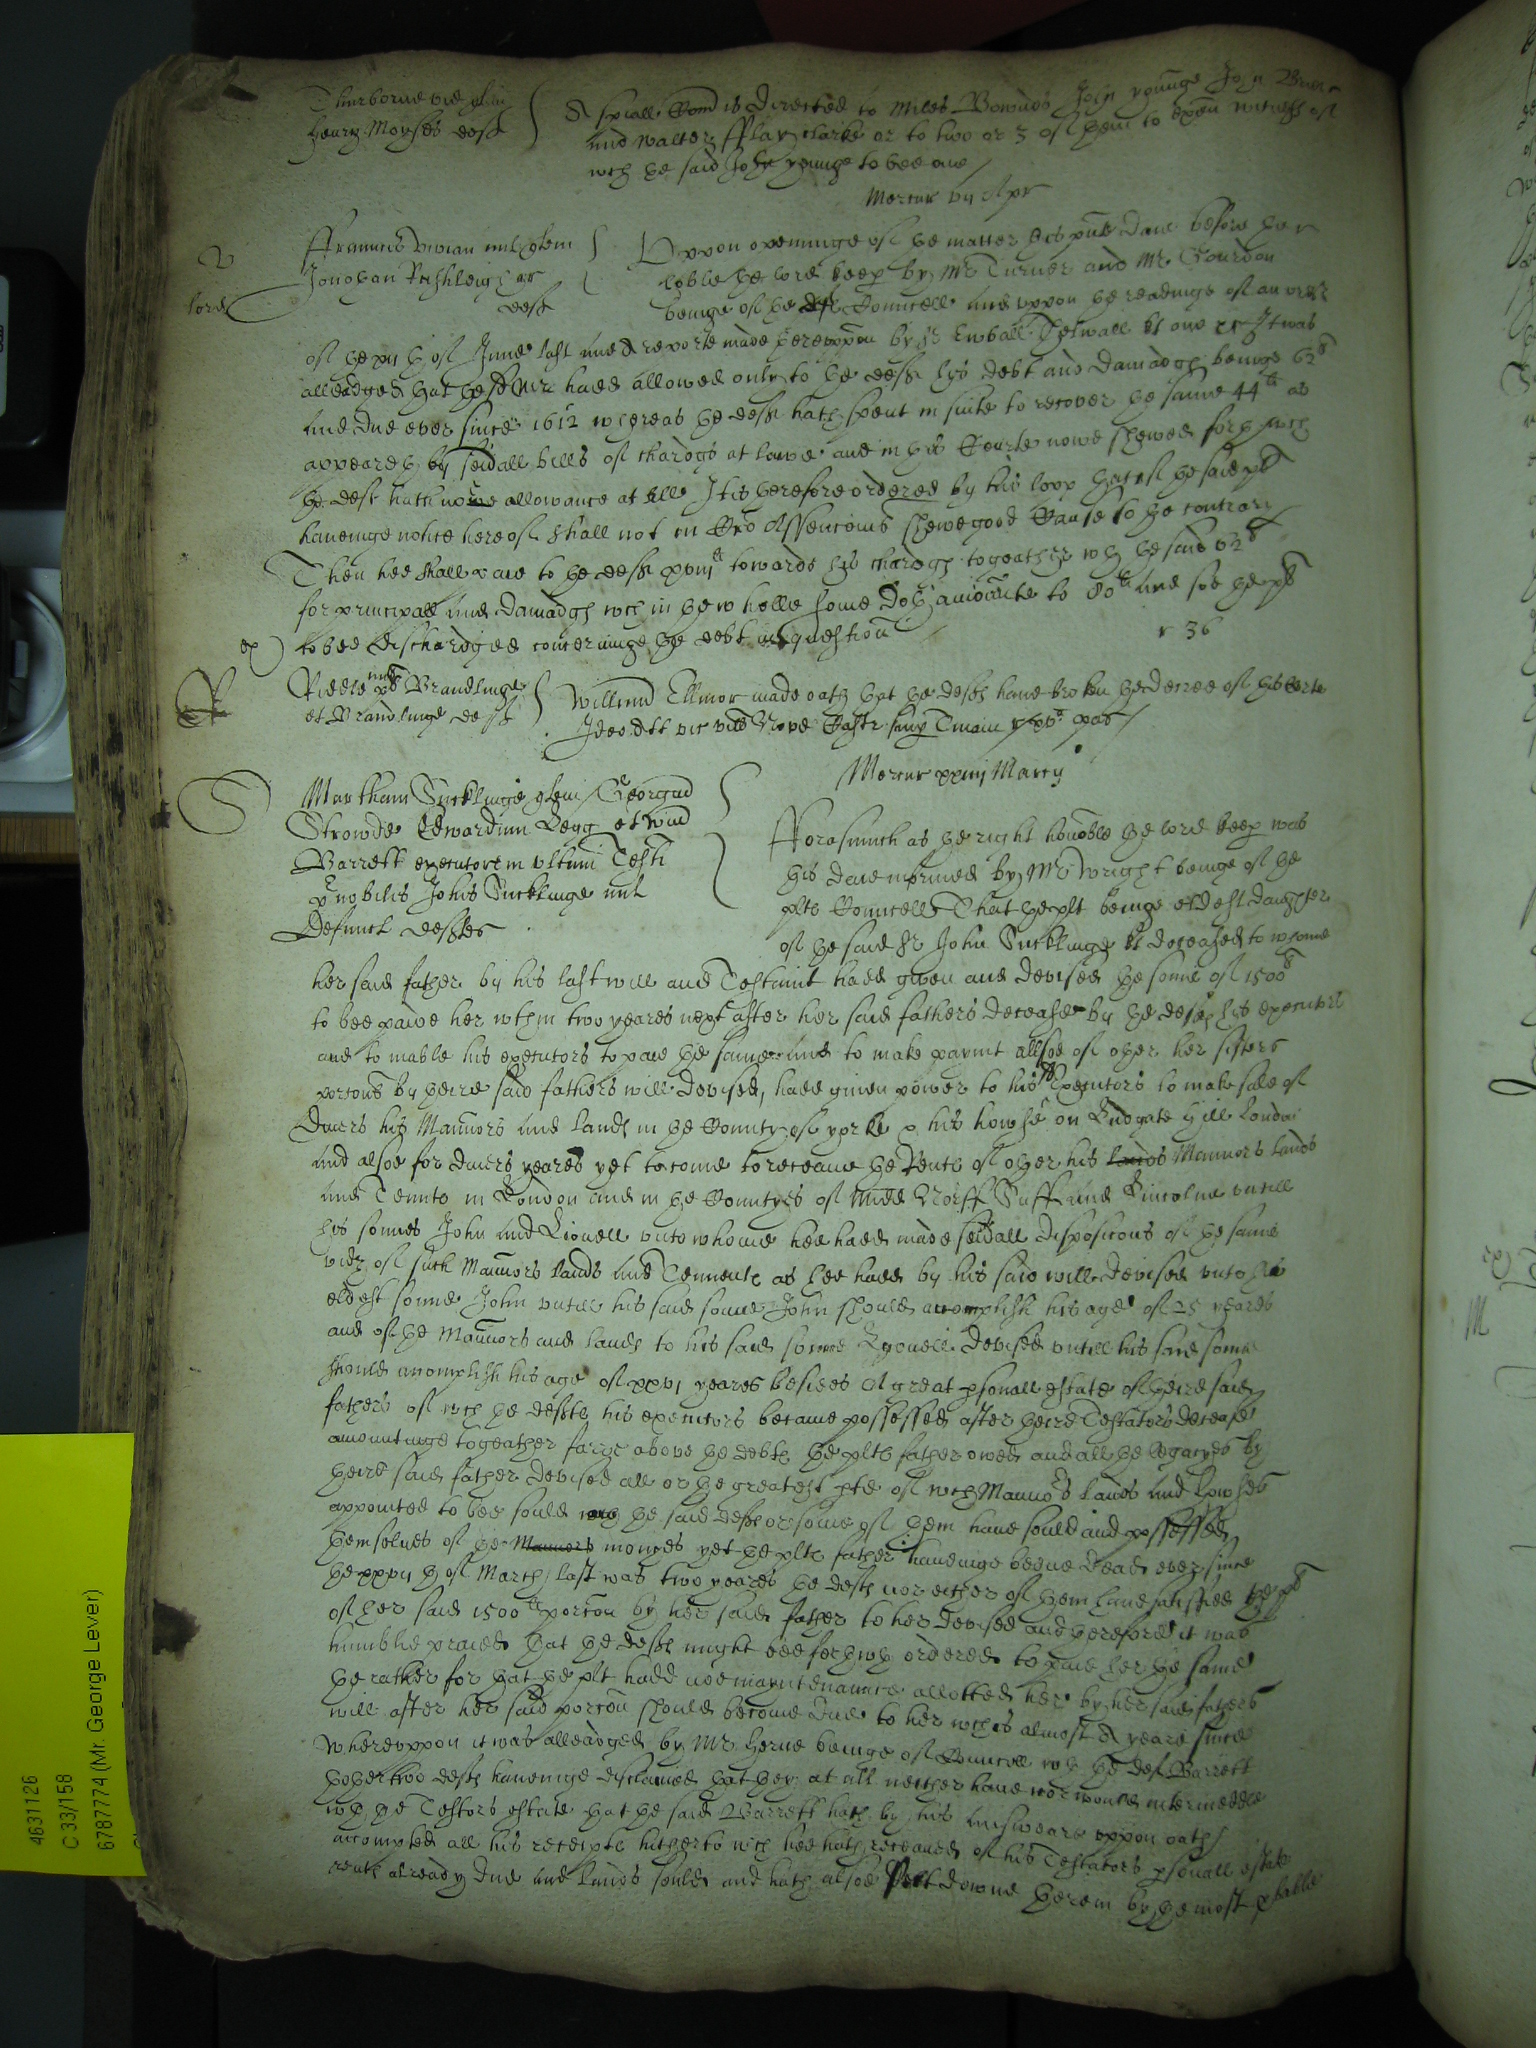 Thurborne vid plt
Henry Moyses deft
A spiall Com is directed to Miles Bowndes John younge John
and Walter Fflay clarke or to two or 3 of them to exam witness of
wch the said John younge to bee one
Mercur vij Apr
V
ffrancis Vivian mil plt
Jonathan Rashleigh ar
deft
lord
Uppon openinge of the matter this pnte daie before the
loble the lord keep by Mr Turner and Mr Gourdon
beinge of the deft Councell and uppon the readinge of an order
of the xij th of June last and A reporte made thereuppon by Sr Ewball Thelwall kt one &c It was
alleadged that the Mr hadd allowed only to the deft his debt and damadgs beinge 62
and due ever since 1612 whereas the deft hath spent in suite to recover the same 44 li as
appeareth by seuall bills of chardgs at lawe and in this Courte nowe shewed forth wch
the deft hath noe allowance at all It is therefore ordered by his lopp that if the said plt
haveinge notice hereof shall not in two Assencions shewe good Cause to the contrary
Then hee shall paie to the deft xviij li towards his chardgs togeather wth the said 62
for principall and damadgs wch in the wholle some doth amounte to 80 li and soe the plt
ex
to bee dischardged concerninge the debt in question
r 36
R
Riddle mil plt Brandlinge
et Brandlinge deft
Willimd Ellmor made oath that the defts have broken the decree of this Corte
Ideo att vic vill Nove Castr sup Tinam
Mercur xxiiij Marcij
S
Martham Sucklinge plt Georgiu
Strowde Edwardum Legg et Will
Barrett executores ultimi Testi
pnobilis Johis Sucklinge mil
Defunct deftes
Fforasmuch as the right honoble the lord keep was
this daie informed by Mr Wright beinge of the
plts Councell That the plt beinge eldest daughter
of the said Sr John Sucklinge kt deceased to whome
her said father by his last will and Testamt hadd given and devised the some of 1500
to bee paide her wthin two yeares next after her said fathers decease by the defts his executors
and to inable his executors to paie the same and to make paymt allsoe of other her sisters
porcons by theire said fathers will devised, hadd given power to his Executors to make sale of
divers his Mannors and lands in the County of yorke & his howse on Ludgate Hill London
and alsoe for divers yeares yet to come to receave the Rents of other his lands Mannors lands
and Tennts in London and in the Countyes of Midd Norff Suff and Lincolne untill
his sonnes John and Lionell unto whome hee hadd made seuall disposicons of the same
vidz of such Mannors lands and Tenements as hee hadd by his said will devised unto his
eldest sonne John untill his said sonne John should accomplish his age of 25 yeares
and of the Mannors and lands to his said sonne Lyonell devised untill his said sonne
should accomplish his age of xxvj yeares besides A great psonall estate of theire said
fathers of wch the defts his executors became possessed after theire Testators decease
amountinge togeather farre above the debts the plts father owed and all the legacyes by
theire said father devised all or the greatest pte of wch Mannors lands and howses
appointed to bee sould the said defts or some of them have sould and possessed
themselves of the Mannors monyes yet the plts father haveinge beene dead ever since
the xxvij th of March last was two yeares the defts nor either of them have satisfied the plt
of her said 1500 li porcon by her said father to her devised and therefore it was
humblie praied that the defts might bee forthwth ordered to paie her the same
the rather for that the plt hadd noe mayntenaunce allotted her by her said fathers
will after her said porcon should become due to her wch is almost A yeare since
Whereuppon it was alleadged by Mr Herne beinge of Councell wth the deft Barrett
thother two defts haveinge disclaimed that they at all neither have nor would intermeddle
wth the Testors estate that the said Barrett hath by his answeare uppon oath
accompted all his receipts hitherto wch hee hath receaved of his Testators psonall estate
rents already due and lands sould and hath alsoe sett downe therein by the most pbable
4631126
C 33/158
6787774 (Mr. George Lever)